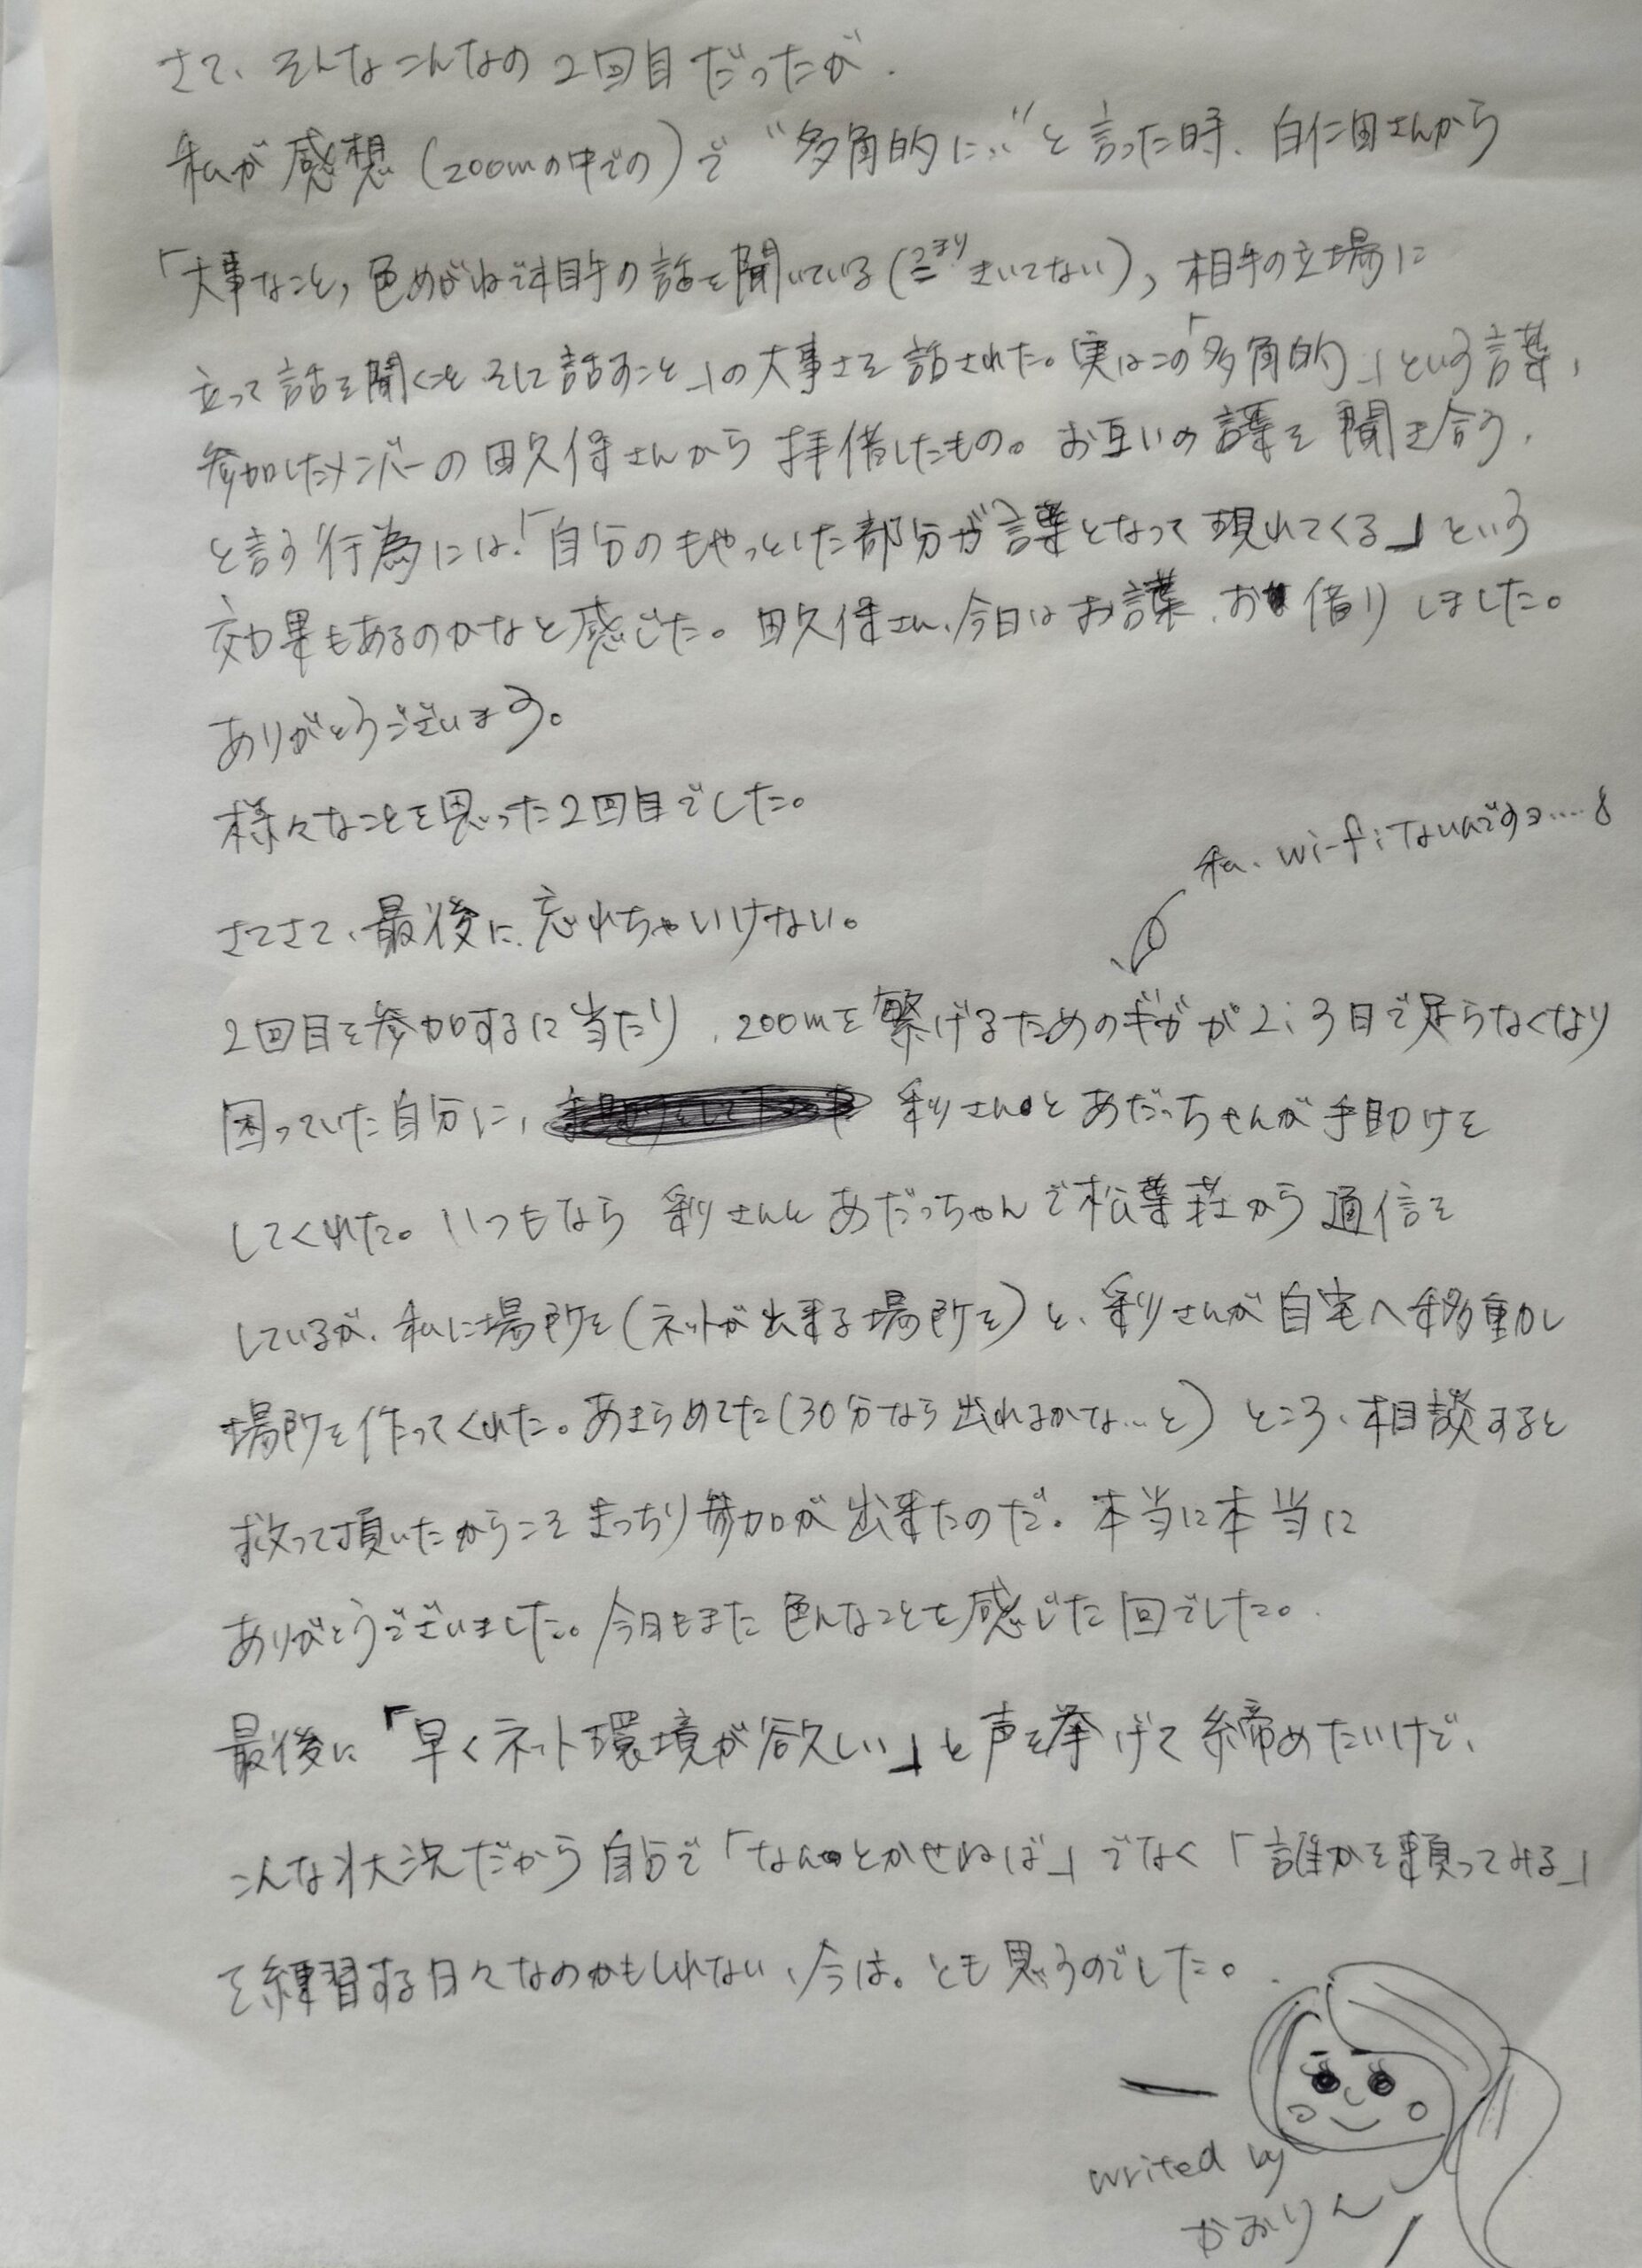 さて、そんなこんなの2回目だったが、
私が感想(zoomの中での)で"多角的に…"と言った時、白仁田さんから
「大事なこと、色めがねで相手の話を聞いている(つまりきいてない)、相手の立場に
立って話を聞くことそして話すこと」の大事さを話された。実はこの「多角的」という言葉、
参加したメンバーの田久保さんから拝借したもの。お互いの言葉を聞き合う、
と言う行為には「自分のもやっとした部分が言葉となって現れてくる」という
効果もあるのかなと感じた。田久保さん、今日はお言葉、お借りしました。
ありがとうございます。
様々なことを思った2回目でした。
私、wi-fiないんですョ….
さてさて、最後に忘れちゃいけない。
2回目を参加するに当たり、zoomを繋げるためのギガが2、3日で足らなくなり
困っていた自分に、彩さんとあだっちゃんが手助けを
してくれた。いつもなら彩さんとあだっちゃんで松葉荘から通信を
しているが、私に場所を(ネットが出来る場所を)と、彩さんが自宅へ移動し
場所を作ってくれた。あきらめてた(30分なら出れるかな…と)ところ、相談すると
救って頂いたからこそきっちり参加が出来たのだ。本当に本当に
ありがとうございました。今日もまた色んなことを感じた回でした。
最後に「早くネット環境が欲しい」と声を挙げて締めたいけど、
こんな状況だから自分で「なんとかせねば」でなく「誰かを頼ってみる」
を練習する日々なのかもしれない、今は。とも思うのでした。
writed by
かおりん